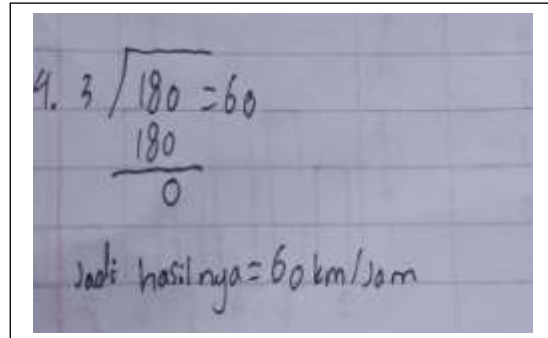 4. 3 / 180 = 60
180
0
Jadi hasilnya = 60 km/Jam